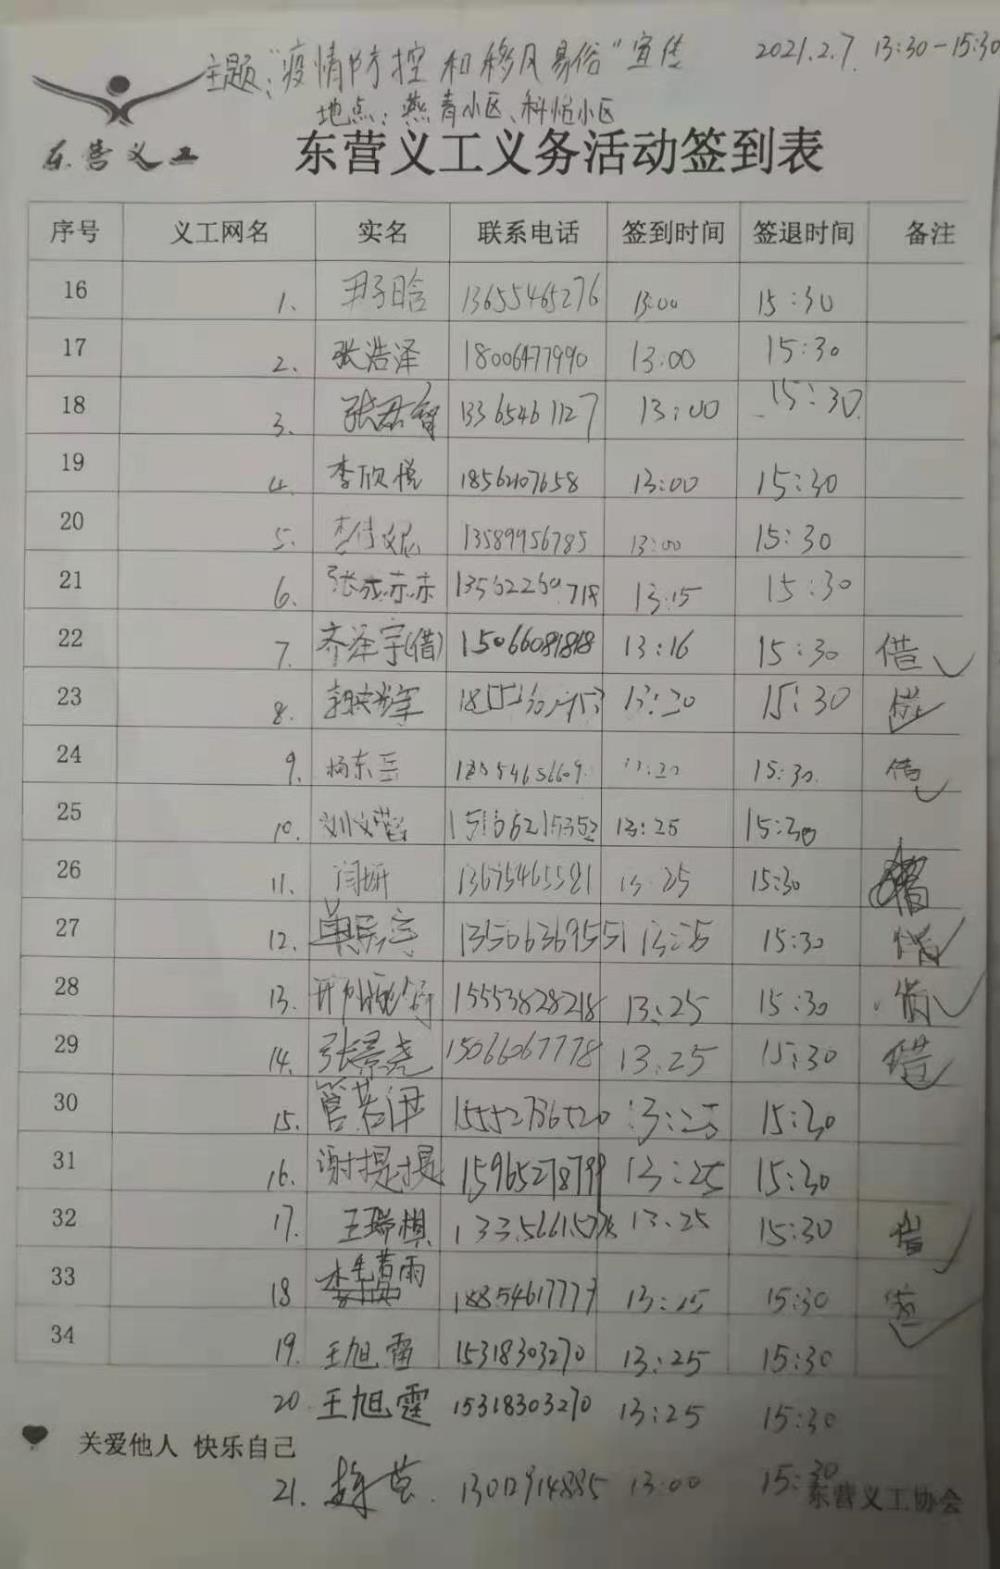 主题:"疫情防控和移风易俗"宣传 2021.2.7 13:30-15:30
地点:燕青小区、科怡小区
东营义工
东营义工义务活动签到表
序号 义工网名 实名 联系电话 签到时间 签退时间 备注
16 1. 尹子晗 13655465276 13:00 15:30
17 2. 张浩泽 18006477990 13:00 15:30
18 3. 张君智 13365461127 13:00 15:30
19 4. 李欣悦 18562107658 13:00 15:30
20 5. 13589956785 13:00 15:30
21 6. 13562260718 13:15 15:30
22 7. 齐泽宇(借) 15066081818 13:16 15:30 借
23 8. 13:20 15:30 借
24 9. 杨东岳 13:20 15:30 借
25 10. 13:25 15:30
26 11. 闫妍 13675465521 13:25 15:30
27 12. 13506369551 13:25 15:30 借
28 13. 15553828218 13:25 15:30 借
29 14. 张景尧 15066067778 13:25 15:30 借
30 15. 管若伊 15552736520 13:25 15:30
31 16. 谢提提 15965278799 13:25 15:30
32 17. 王瑞棋 13:25 15:30 借
33 18 18854617777 13:25 15:30
34 19. 王旭雷 15318303270 13:25 15:30
20. 王旭霆 15318303270 13:25 15:30
关爱他人 快乐自己
21. 13012914885 13:00 15:30
东营义工协会